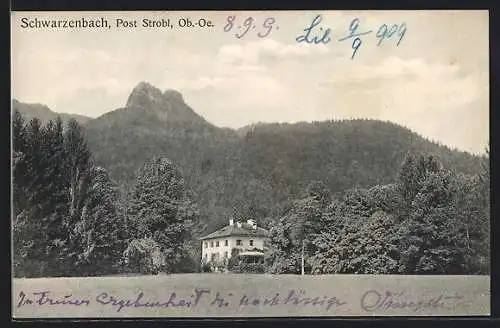 Schwarzenbach, Post Strobl, Ob.-Oe.
8.9.9. Lib 9/9 909
In treuer Ergebenheit die nachlässige